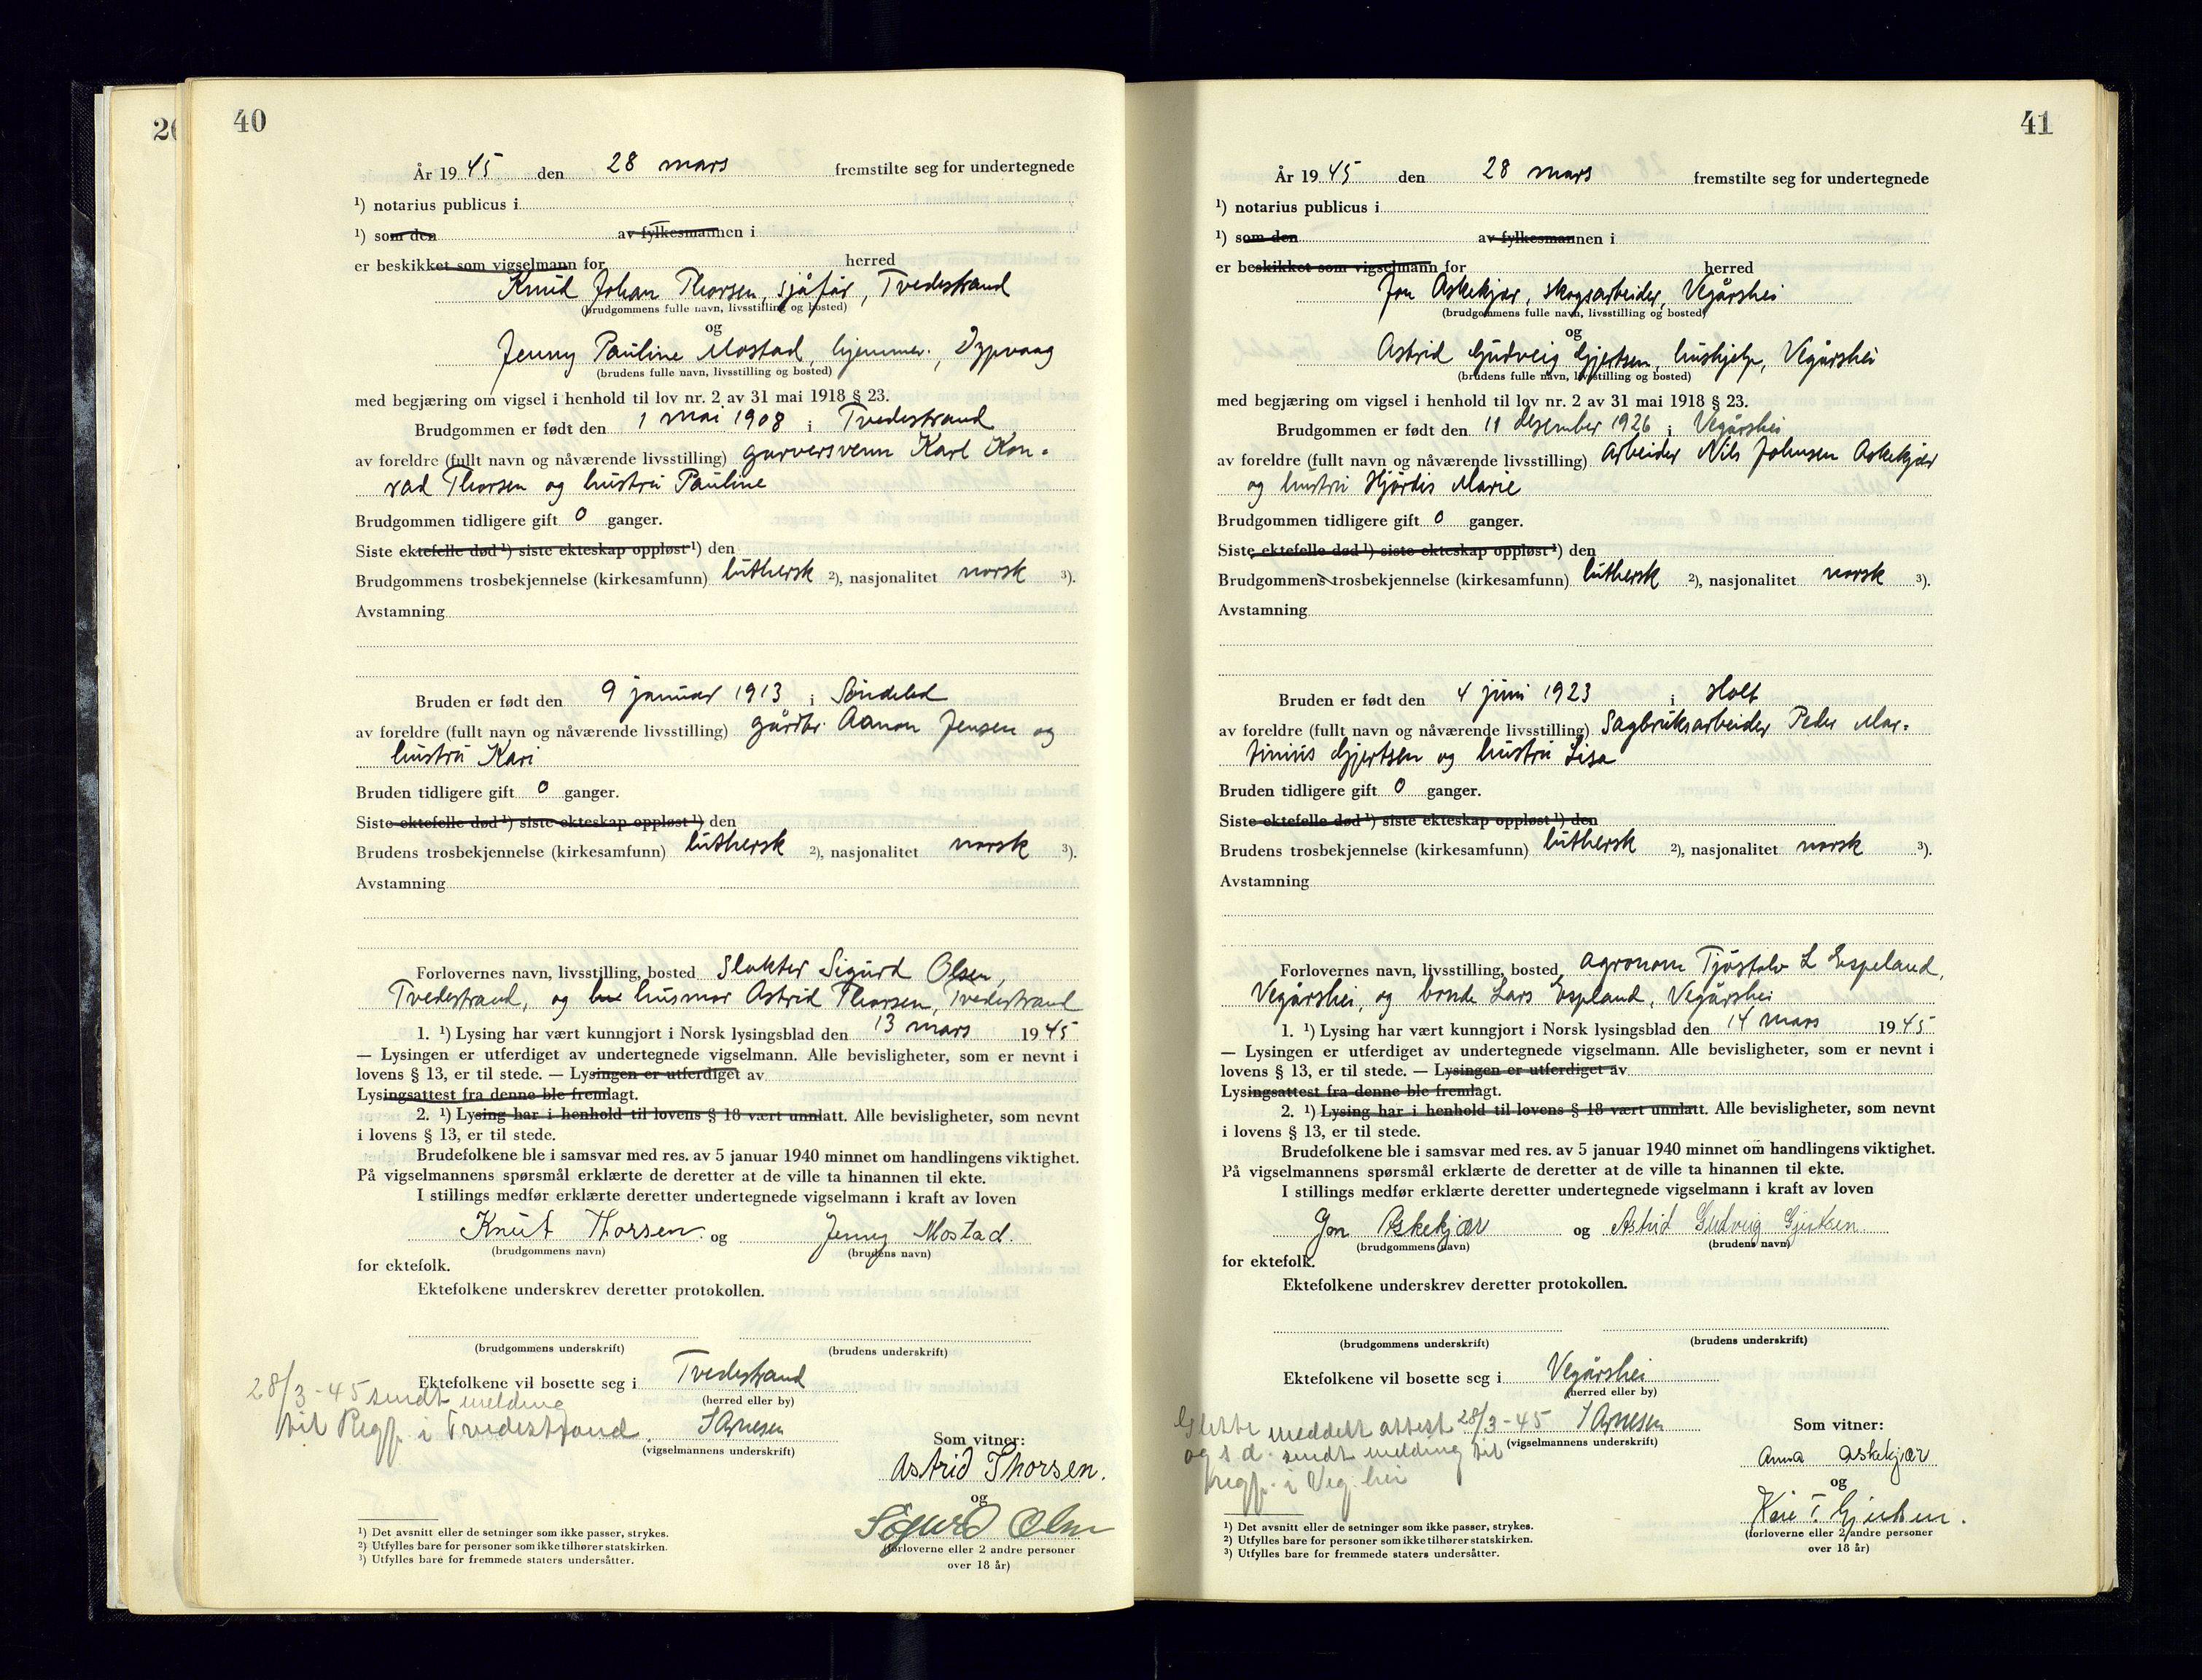 26
40
År 19 45 den 28 mars fremstilte seg for undertegnede
¹) notarius publicus i
¹) som den av fylkesmannen i
er beskikket som vigselmann for herred
Knud Johan Thorsen, sjåfør, Tvedestrand
(brudgommens fulle navn, livsstilling og bosted)
og
Jenny Pauline Mostad, hjemmev., Dypvaag
(brudens fulle navn, livsstilling og bosted)
med begjæring om vigsel i henhold til lov nr. 2 av 31 mai 1918 § 23.
Brudgommen er født den 1 mai 1908 i Tvedestrand
av foreldre (fullt navn og nåværende livsstilling) garversvenn Karl Kon-
rad Thorsen og hustru Pauline
Brudgommen tidligere gift 0 ganger.
Siste ektefelle død ¹) siste ekteskap oppløst ¹) den
Brudgommens trosbekjennelse (kirkesamfunn) luthersk ²), nasjonalitet norsk ³).
Avstamning
Bruden er født den 9 januar 1913 i Søndeled
av foreldre (fullt navn og nåværende livsstilling) gårdbr. Aanon Jensen og
hustru Kari
Bruden tidligere gift 0 ganger.
Siste ektefelle død ¹) siste ekteskap oppløst ¹) den
Brudens trosbekjennelse (kirkesamfunn) luthersk ²), nasjonalitet norsk ³).
Avstamning
Forlovernes navn, livsstilling, bosted Slakter Sigurd Olsen,
Tvedestrand, og husmor Astrid Thorsen, Tvedestrand
1. ¹) Lysing har vært kunngjort i Norsk lysingsblad den 13 mars 19 45
— Lysingen er utferdiget av undertegnede vigselmann. Alle bevisligheter, som er nevnt i
lovens § 13, er til stede. — Lysingen er utferdiget av
Lysingsattest fra denne ble fremlagt.
2. ¹) Lysing har i henhold til lovens § 18 vært unnlatt. Alle bevisligheter, som nevnt
i lovens § 13, er til stede.
Brudefolkene ble i samsvar med res. av 5 januar 1940 minnet om handlingens viktighet.
På vigselmannens spørsmål erklærte de deretter at de ville ta hinannen til ekte.
I stillings medfør erklærte deretter undertegnede vigselmann i kraft av loven
Knut Thorsen og Jenny Mostad.
(brudgommens navn) (brudens navn)
for ektefolk.
Ektefolkene underskrev deretter protokollen.
(brudgommens underskrift) (brudens underskrift)
Ektefolkene vil bosette seg i Tvedestrand
(herred eller by)
28/3-45 sendt melding
til Regf. i Tvedestrand.
S Arnesen
(vigselmannens underskrift)
Som vitner:
Astrid Thorsen.
og
Sigurd Olsen
(forloverne eller 2 andre personer
over 18 år)
¹) Det avsnitt eller de setninger som ikke passer, strykes.
²) Utfylles bare for personer som ikke tilhører statskirken.
³) Utfylles bare for fremmede staters undersåtter.
41
År 19 45 den 28 mars fremstilte seg for undertegnede
¹) notarius publicus i
¹) som den av fylkesmannen i
er beskikket som vigselmann for herred
Jon Askekjær, skogsarbeider, Vegårshei
(brudgommens fulle navn, livsstilling og bosted)
og
Astrid Gudveig Gjertsen, hushjelp, Vegårshei
(brudens fulle navn, livsstilling og bosted)
med begjæring om vigsel i henhold til lov nr. 2 av 31 mai 1918 § 23.
Brudgommen er født den 11 desember 1926 i Vegårshei
av foreldre (fullt navn og nåværende livsstilling) arbeider Nils Johnsen Askekjær
og hustru Hjördis Marie
Brudgommen tidligere gift 0 ganger.
Siste ektefelle død ¹) siste ekteskap oppløst ¹) den
Brudgommens trosbekjennelse (kirkesamfunn) luthersk ²), nasjonalitet norsk ³).
Avstamning
Bruden er født den 4 juni 1923 i Holt
av foreldre (fullt navn og nåværende livsstilling) Sagbruksarbeider Peder Mar-
tinius Gjertsen og hustru Lisa
Bruden tidligere gift 0 ganger.
Siste ektefelle død ¹) siste ekteskap oppløst ¹) den
Brudens trosbekjennelse (kirkesamfunn) luthersk ²), nasjonalitet norsk ³).
Avstamning
Forlovernes navn, livsstilling, bosted agronom Tjöstolv L Espeland,
Vegårshei, og bonde Lars Espland, Vegårshei
1. ¹) Lysing har vært kunngjort i Norsk lysingsblad den 14 mars 19 45
— Lysingen er utferdiget av undertegnede vigselmann. Alle bevisligheter, som er nevnt i
lovens § 13, er til stede. — Lysingen er utferdiget av
Lysingsattest fra denne ble fremlagt.
2. ¹) Lysing har i henhold til lovens § 18 vært unnlatt. Alle bevisligheter, som nevnt
i lovens § 13, er til stede.
Brudefolkene ble i samsvar med res. av 5 januar 1940 minnet om handlingens viktighet.
På vigselmannens spørsmål erklærte de deretter at de ville ta hinannen til ekte.
I stillings medfør erklærte deretter undertegnede vigselmann i kraft av loven
Jon Askekjær og Astrid Gudveig Gjertsen
(brudgommens navn) (brudens navn)
for ektefolk.
Ektefolkene underskrev deretter protokollen.
(brudgommens underskrift) (brudens underskrift)
Ektefolkene vil bosette seg i Vegårshei
(herred eller by)
meddelt attest 28/3-45
og s d. sendt melding til
regf. i Veg.hei
S Arnesen
(vigselmannens underskrift)
Som vitner:
Anna Askekjær
og
Kare T. Gjertsen.
(forloverne eller 2 andre personer
over 18 år)
¹) Det avsnitt eller de setninger som ikke passer, strykes.
²) Utfylles bare for personer som ikke tilhører statskirken.
³) Utfylles bare for fremmede staters undersåtter.